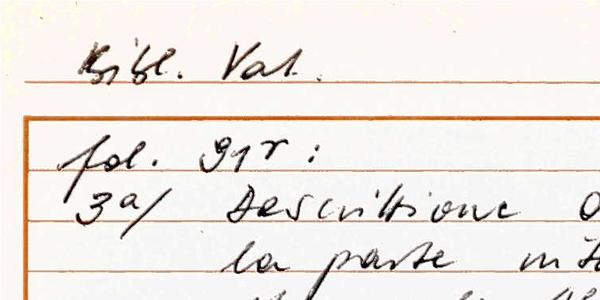 Bibl. Vat.
fol. 91r:
3a/ Descrittione
la parte